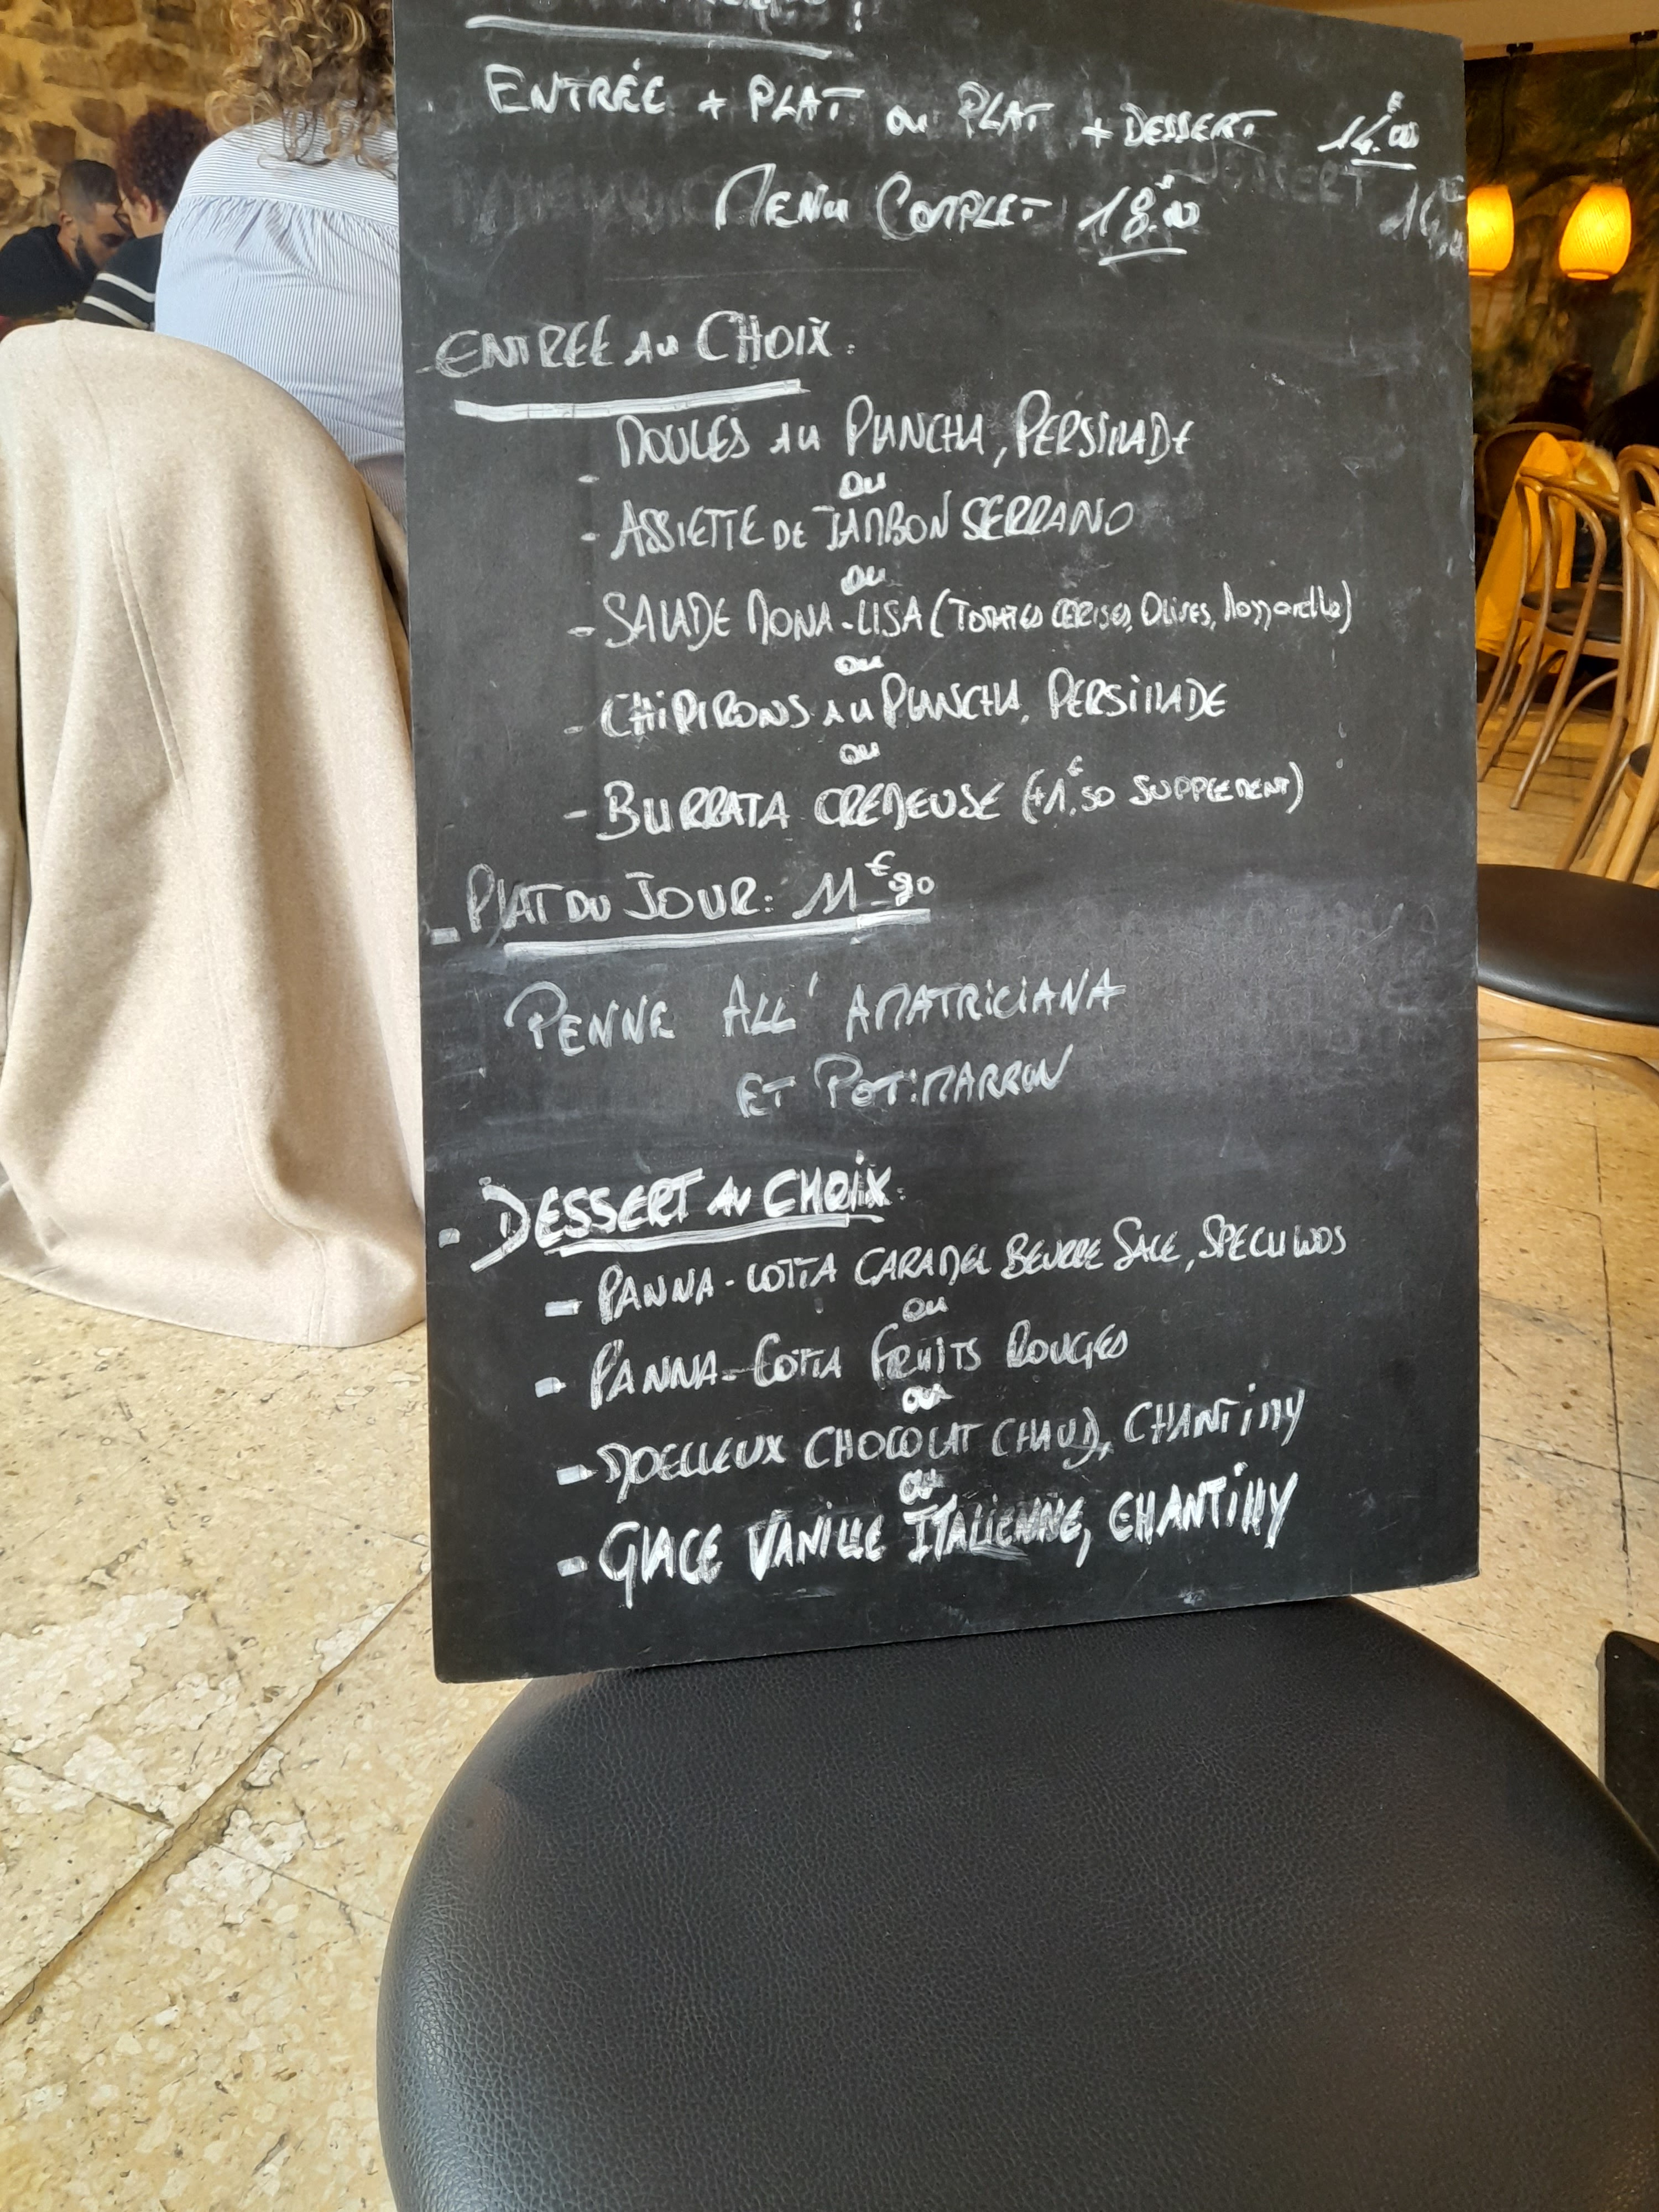 ENTRÉE + PLAT ou PLAT + DESSERT 14.€00
MENU COMPLET 18.€00
ENTREE AU CHOIX:
- MOULES AU PLANCHA, PERSILLADE
OU
- ASSIETTE DE JAMBON SERRANO
OU
- SALADE MONA-LISA (TOMATES CERISES, OLIVES, Mozzarella)
OU
- CHIPIRONS AU PLANCHA, PERSILLADE
OU
- BURRATA CREMEUSE (+1,€50 SUPPLEMENT)
- PLAT DU JOUR: 11€90
PENNE ALL' AMATRICIANA
ET POTIMARRON
- DESSERT AU CHOIX:
- PANNA-COTTA CARAMEL BEURRE SALE, SPECULOOS
OU
- PANNA-COTTA FRUITS ROUGES
OU
- MOELLEUX CHOCOLAT CHAUD, CHANTILLY
OU
- GLACE VANILLE ITALIENNE, CHANTILLY